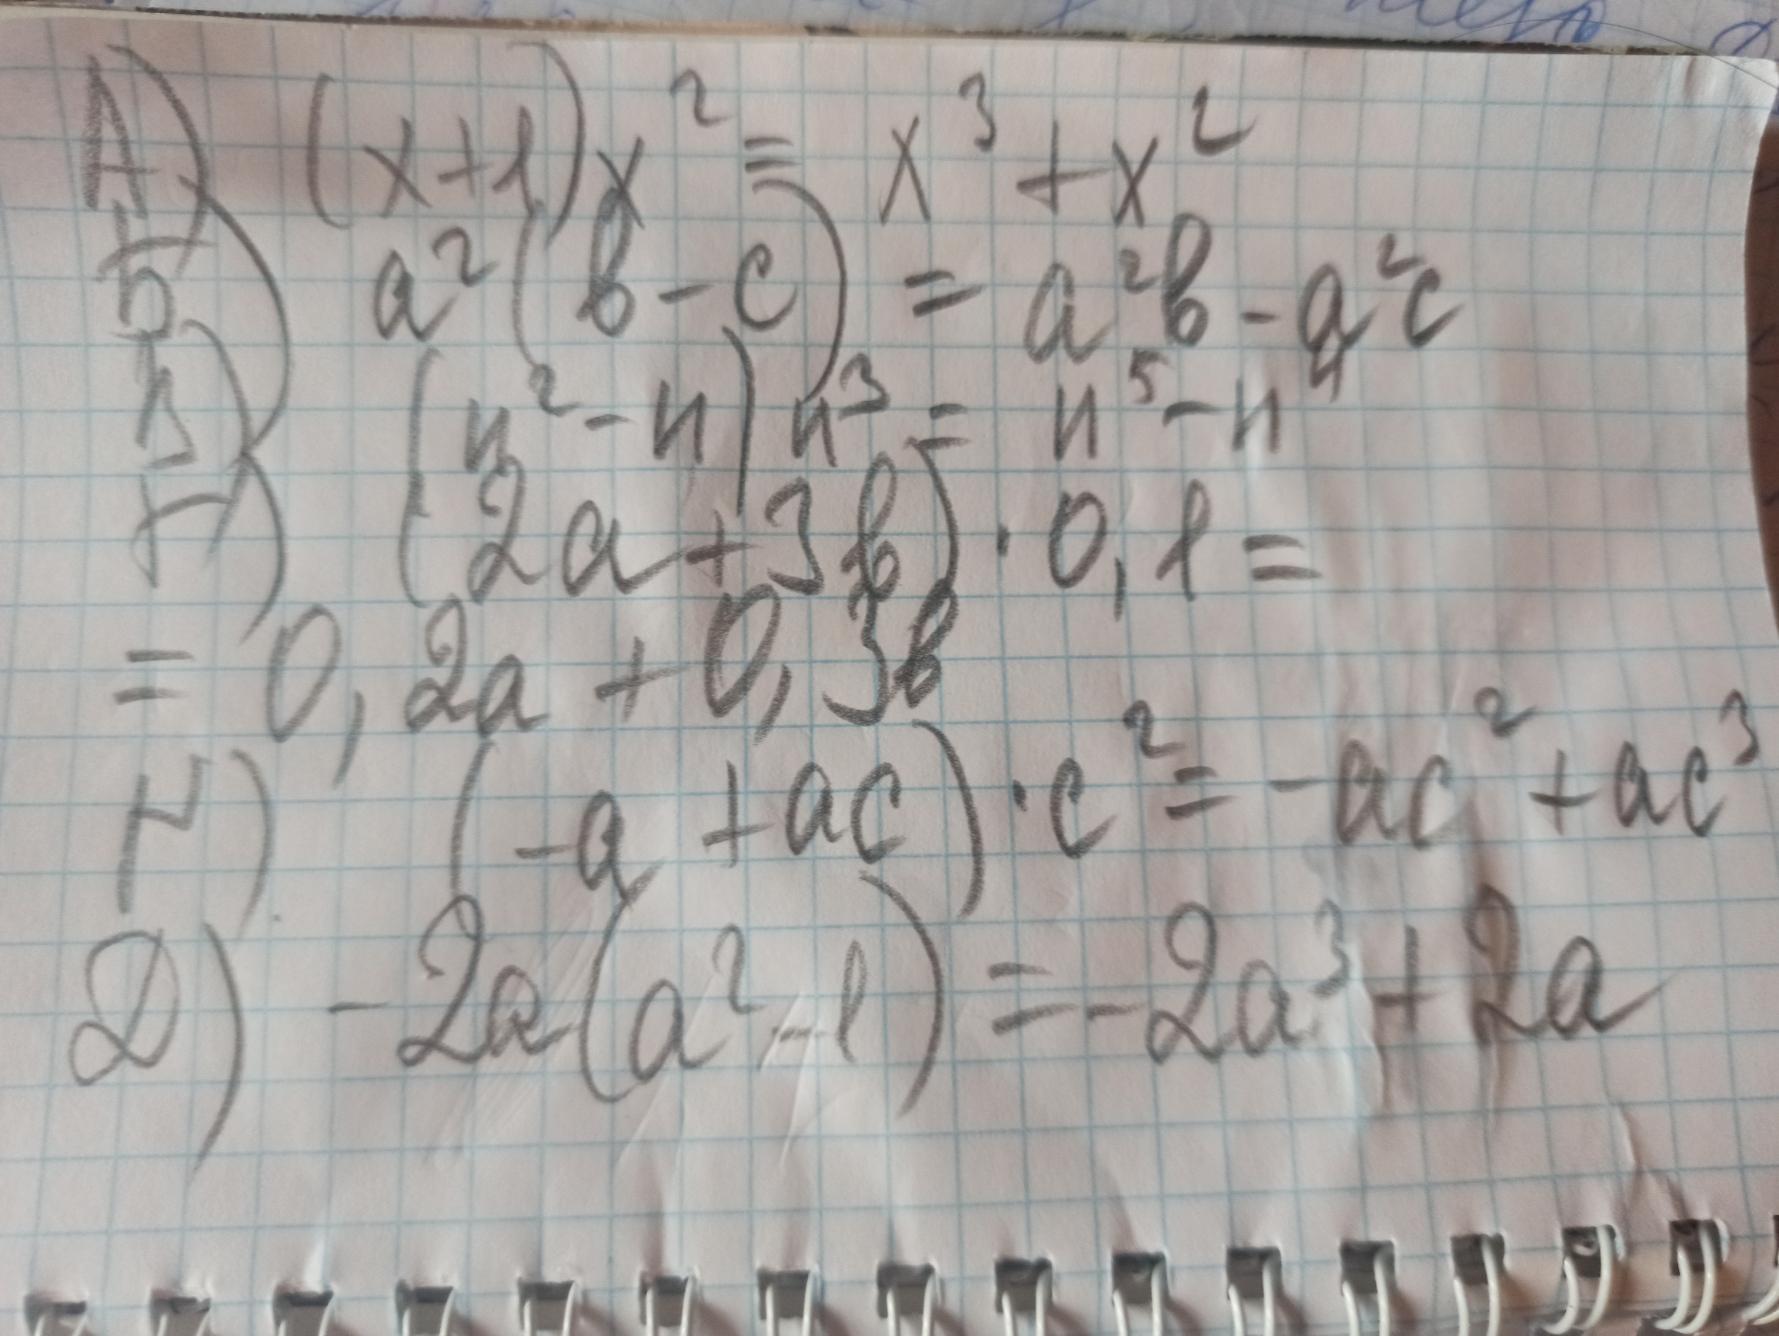 А) (x+1)x² = x³ + x²
Б) a²(b - c) = a²b - a²c
В) (n² - n)n³ = n⁵ - n⁴
Г) (2a + 3b) · 0,1 =
= 0,2a + 0,3b
Г) (-a + ac) · c² = -ac² + ac³
D) -2a(a² - 1) = -2a³ + 2a